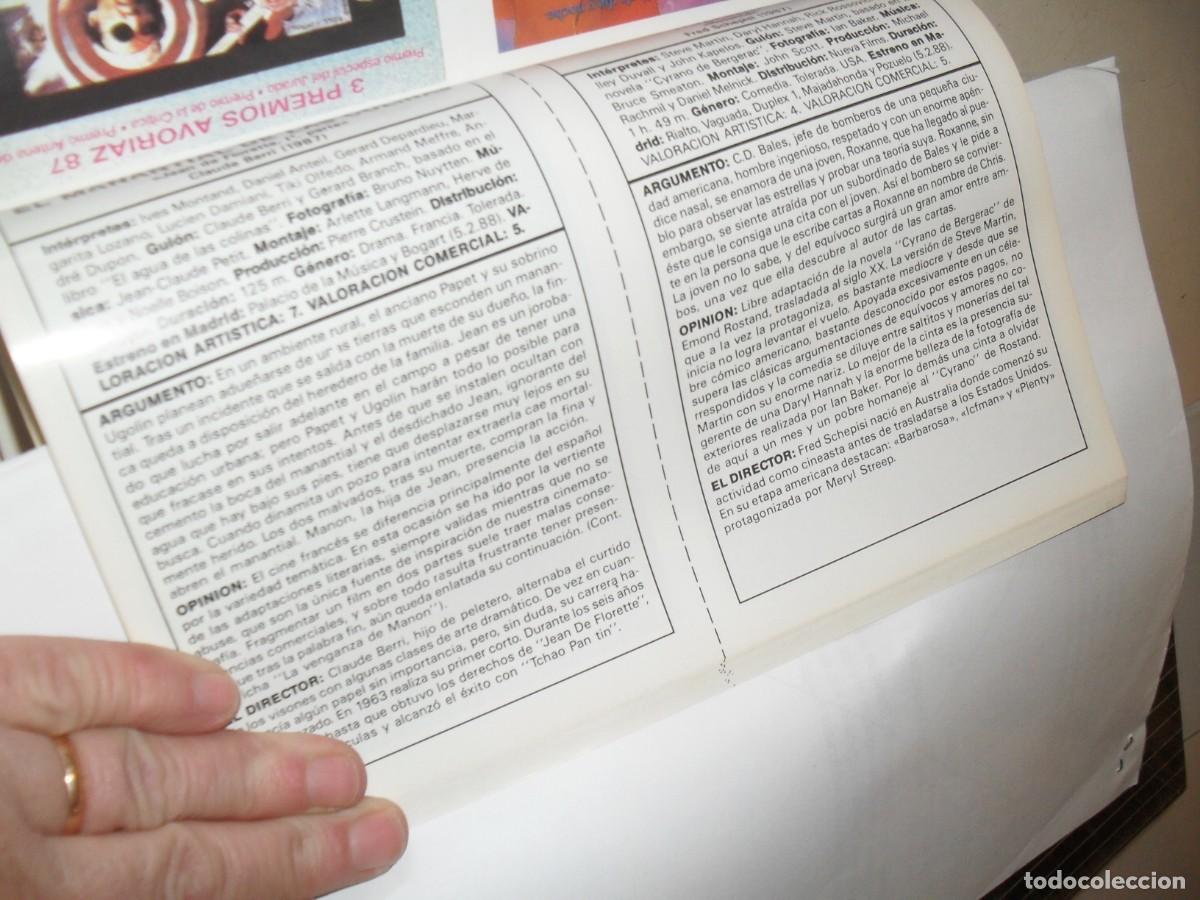 3 PREMIOS AVORIAZ 87
Premio especial del Jurado • Premio de la Crítica • Premio Antena de
Claude Berri (1987)
Intérpretes: Ives Montand, Daniel Anteil, Gerard Depardieu, Mar-
garita Lozano, Lucien Damiani, Tiki Olfedo, Armand Meffre, An-
dré Dupon. Guión: Claude Berri y Gerard Branch, basado en el
libro "El agua de las colinas". Fotografía: Bruno Nuytten. Mú-
sica: Jean-Claude Petit. Montaje: Arlette Langmann, Herve de
Noel Boisson. Producción: Pierre Crustein. Distribución:
Duración: 125 m. Género: Drama. Francia. Tolerada.
Estreno en Madrid: Palacio de la Música y Bogart (5.2.88). VA-
LORACION ARTISTICA: 7. VALORACION COMERCIAL: 5.
ARGUMENTO: En un ambiente rural, el anciano Papet y su sobrino
Ugolin planean adueñarse de tierras que esconden un manan-
tial. Tras un incidente que se salda con la muerte de su dueño, la fin-
ca queda a disposición del heredero de la familia. Jean es un joroba-
do que lucha por salir adelante en el campo a pesar de tener una
educación urbana; pero Papet y Ugolin harán todo lo posible para
que fracase en sus intentos. Antes de que se instalen ocultan con
cemento la boca del manantial y el desdichado Jean, ignorante del
agua que hay bajo sus pies, tiene que desplazarse muy lejos en su
busca. Cuando dinamita un pozo para intentar extraerla cae mortal-
mente herido. Los dos malvados, tras su muerte, compran la finca y
abren el manantial. Manon, la hija de Jean, presencia la acción.
OPINION: El cine francés se diferencia principalmente del español
por la variedad temática. En esta ocasión se ha ido por la vertiente
de las adaptaciones literarias, siempre validas mientras que no se
abuse, que son la única fuente de inspiración de nuestra cinemato-
grafía. Fragmentar un film en dos partes suele traer malas conse-
cuencias comerciales, y sobre todo resulta frustrante tener presen-
que tras la palabra fin, aún queda enlatada su continuación. (Cont.
ficha "La venganza de Manon").
EL DIRECTOR: Claude Berri, hijo de peletero, alternaba el curtido
los visones con algunas clases de arte dramático. De vez en cuan-
hacía algún papel sin importancia, pero, sin duda, su carrera ha-
zado. En 1963 realiza su primer corto. Durante los seis años
hasta que obtuvo los derechos de "Jean De Florette",
culas y alcanzó el éxito con "Tchao Pan tin".
Fred Schepisi (1987)
Intérpretes: Steve Martin, Daryl Hannah, Rick Rossovich, She-
lley Duvall y John Kapelos. Guión: Steve Martin, basado en la
novela "Cyrano de Bergerac". Fotografía: Ian Baker. Música:
Bruce Smeaton. Montaje: John Scott. Producción: Michael
Rachmil y Daniel Melnick. Distribución: Nueva Films. Duración:
1 h. 49 m. Género: Comedia. Tolerada. USA. Estreno en Ma-
drid: Rialto, Vaguada, Duplex 1, Majadahonda y Pozuelo (5.2.88).
VALORACION ARTISTICA: 4. VALORACION COMERCIAL: 5.
ARGUMENTO: C.D. Bales, jefe de bomberos de una pequeña ciu-
dad americana, hombre ingenioso, respetado y con un enorme apén-
dice nasal, se enamora de una joven, Roxanne, que ha llegado al pue-
blo para observar las estrellas y probar una teoría suya. Roxanne, sin
embargo, se siente atraída por un subordinado de Bales y le pide a
éste que le consiga una cita con el joven. Así el bombero se convier-
te en la persona que le escribe cartas a Roxanne en nombre de Chris.
La joven no lo sabe, y del equivoco surgirá un gran amor entre am-
bos, una vez que ella descubre al autor de las cartas.
OPINION: Libre adaptación de la novela "Cyrano de Bergerac" de
Emond Rostand, trasladada al siglo XX. La versión de Steve Martin,
que a la vez la protagoniza, es bastante mediocre y desde que se
inicia no logra levantar el vuelo. Apoyada excesivamente en un céle-
bre cómico americano, bastante desconocido por estos pagos, no
supera las clásicas argumentaciones de equivocos y amores no co-
rrespondidos y la comedia se diluye entre saltitos y monerías del tal
Martin con su enorme nariz. Lo mejor de la cinta es la presencia su-
gerente de una Daryl Hannah y la enorme belleza de la fotografía de
exteriores realizada por Ian Baker. Por lo demás una cinta a olvidar
de aquí a un mes y un pobre homenaje al "Cyrano" de Rostand.
EL DIRECTOR: Fred Schepisi nació en Australia donde comenzó su
actividad como cineasta antes de trasladarse a los Estados Unidos.
En su etapa americana destacan: «Barbarosa», «Icfman» y «Plenty»
protagonizada por Meryl Streep.
todocoleccion